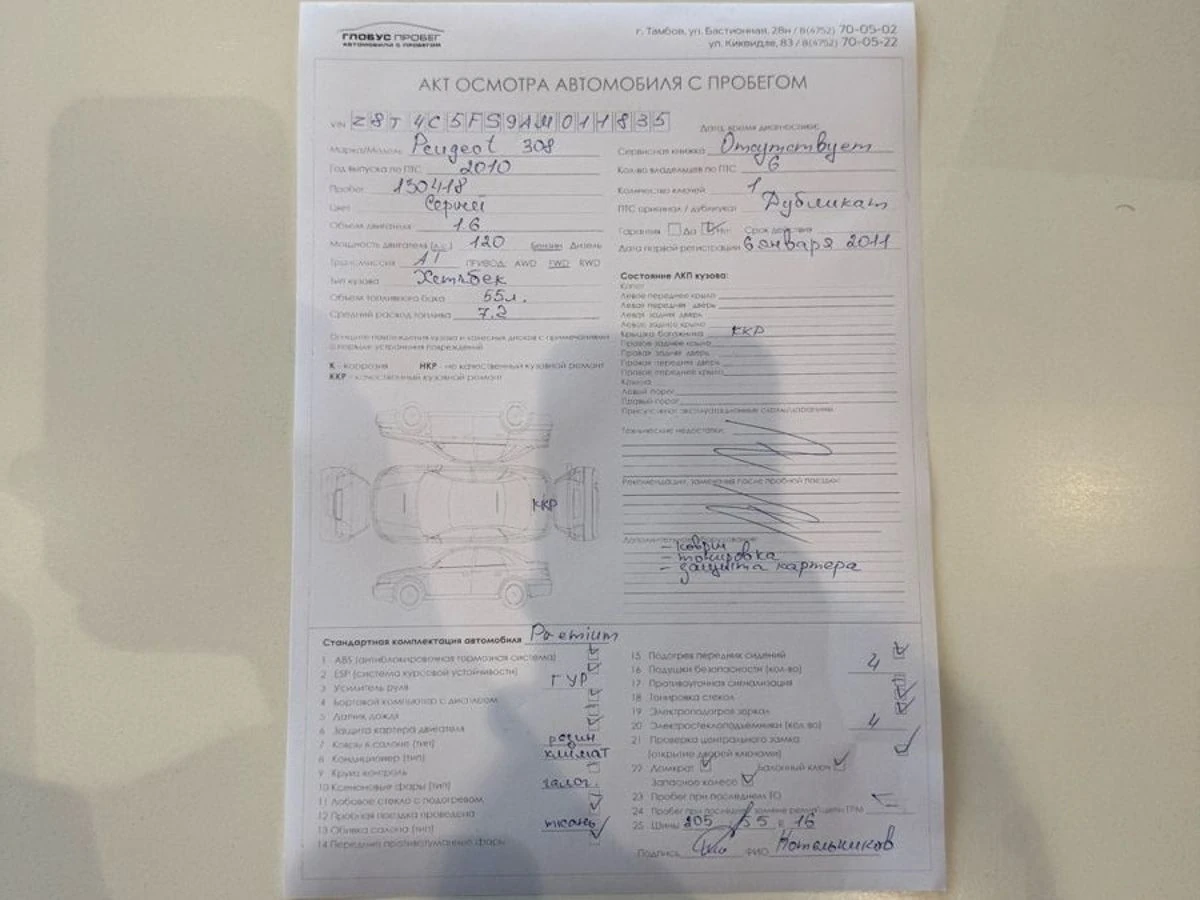 ГЛОБУС ПРОБЕГ
АВТОМОБИЛИ С ПРОБЕГОМ
г. Тамбов, ул. Бастионная, 28н / 8(4752) 70-05-02
ул. Киквидзе, 83 / 8(4752) 70-05-22
АКТ ОСМОТРА АВТОМОБИЛЯ С ПРОБЕГОМ
VIN Z8T4C5FS9AM011835
Дата, время диагностики:
Марка/Модель Peugeot 308
Год выпуска по ПТС 2010
Пробег 130418
Цвет Серый
Объем двигателя 1.6
Мощность двигателя (л.с.) 120 Бензин Дизель
Трансмиссия АТ ПРИВОД: AWD FWD RWD
Тип кузова Хетчбек
Объем топливного бака 55л.
Средний расход топлива 7.2
Сервисная книжка Отсутствует
Кол-во владельцев по ПТС 6
Количество ключей 1
ПТС оригинал / дубликат Дубликат
Гарантия Да Нет Срок действия
Дата первой регистрации 6 января 2011
Опишите повреждения кузова и колесных дисков с примечаниями
о порядке устранения повреждений
К - коррозия НКР - не качественный кузовной ремонт
ККР - качественный кузовной ремонт
ККР
Состояние ЛКП кузова:
Капот
Левое переднее крыло
Левая передняя дверь
Левая задняя дверь
Левое заднее крыло
Крышка багажника ККР
Правое заднее крыло
Правая задняя дверь
Правая передняя дверь
Правое переднее крыло
Крыша
Левый порог
Правый порог
Присутствуют эксплуатационные сколы/царапины
Технические недостатки:
Рекомендации, замечания после пробной поездки:
Дополнительное оборудование:
- коврик
- тонировка
- защита картера
Стандартная комплектация автомобиля Premium
1 ABS (антиблокировочная тормозная система)
2 ESP (система курсовой устойчивости)
3 Усилитель руля ГУР
4 Бортовой компьютер с дисплеем
5 Датчик дождя
6 Защита картера двигателя
7 Ковры в салоне (тип) резин
8 Кондиционер (тип) климат
9 Круиз контроль
10 Ксеноновые фары (тип) галог.
11 Лобовое стекло с подогревом
12 Пробная поездка проведена
13 Обивка салона (тип) ткань
14 Передние противотуманные фары
15 Подогрев передних сидений
16 Подушки безопасности (кол-во) 4
17 Противоугонная сигнализация
18 Тонировка стекол
19 Электроподогрев зеркал
20 Электростеклоподъемники (кол-во) 4
21 Проверка центрального замка
(открытие дверей ключами)
22 Домкрат Балонный ключ
Запасное колесо
23 Пробег при последнем ТО
24 Пробег при последней замене ремня/цепи ГРМ
25 Шины 205 / 55 R 16
Подпись ФИО Котельников